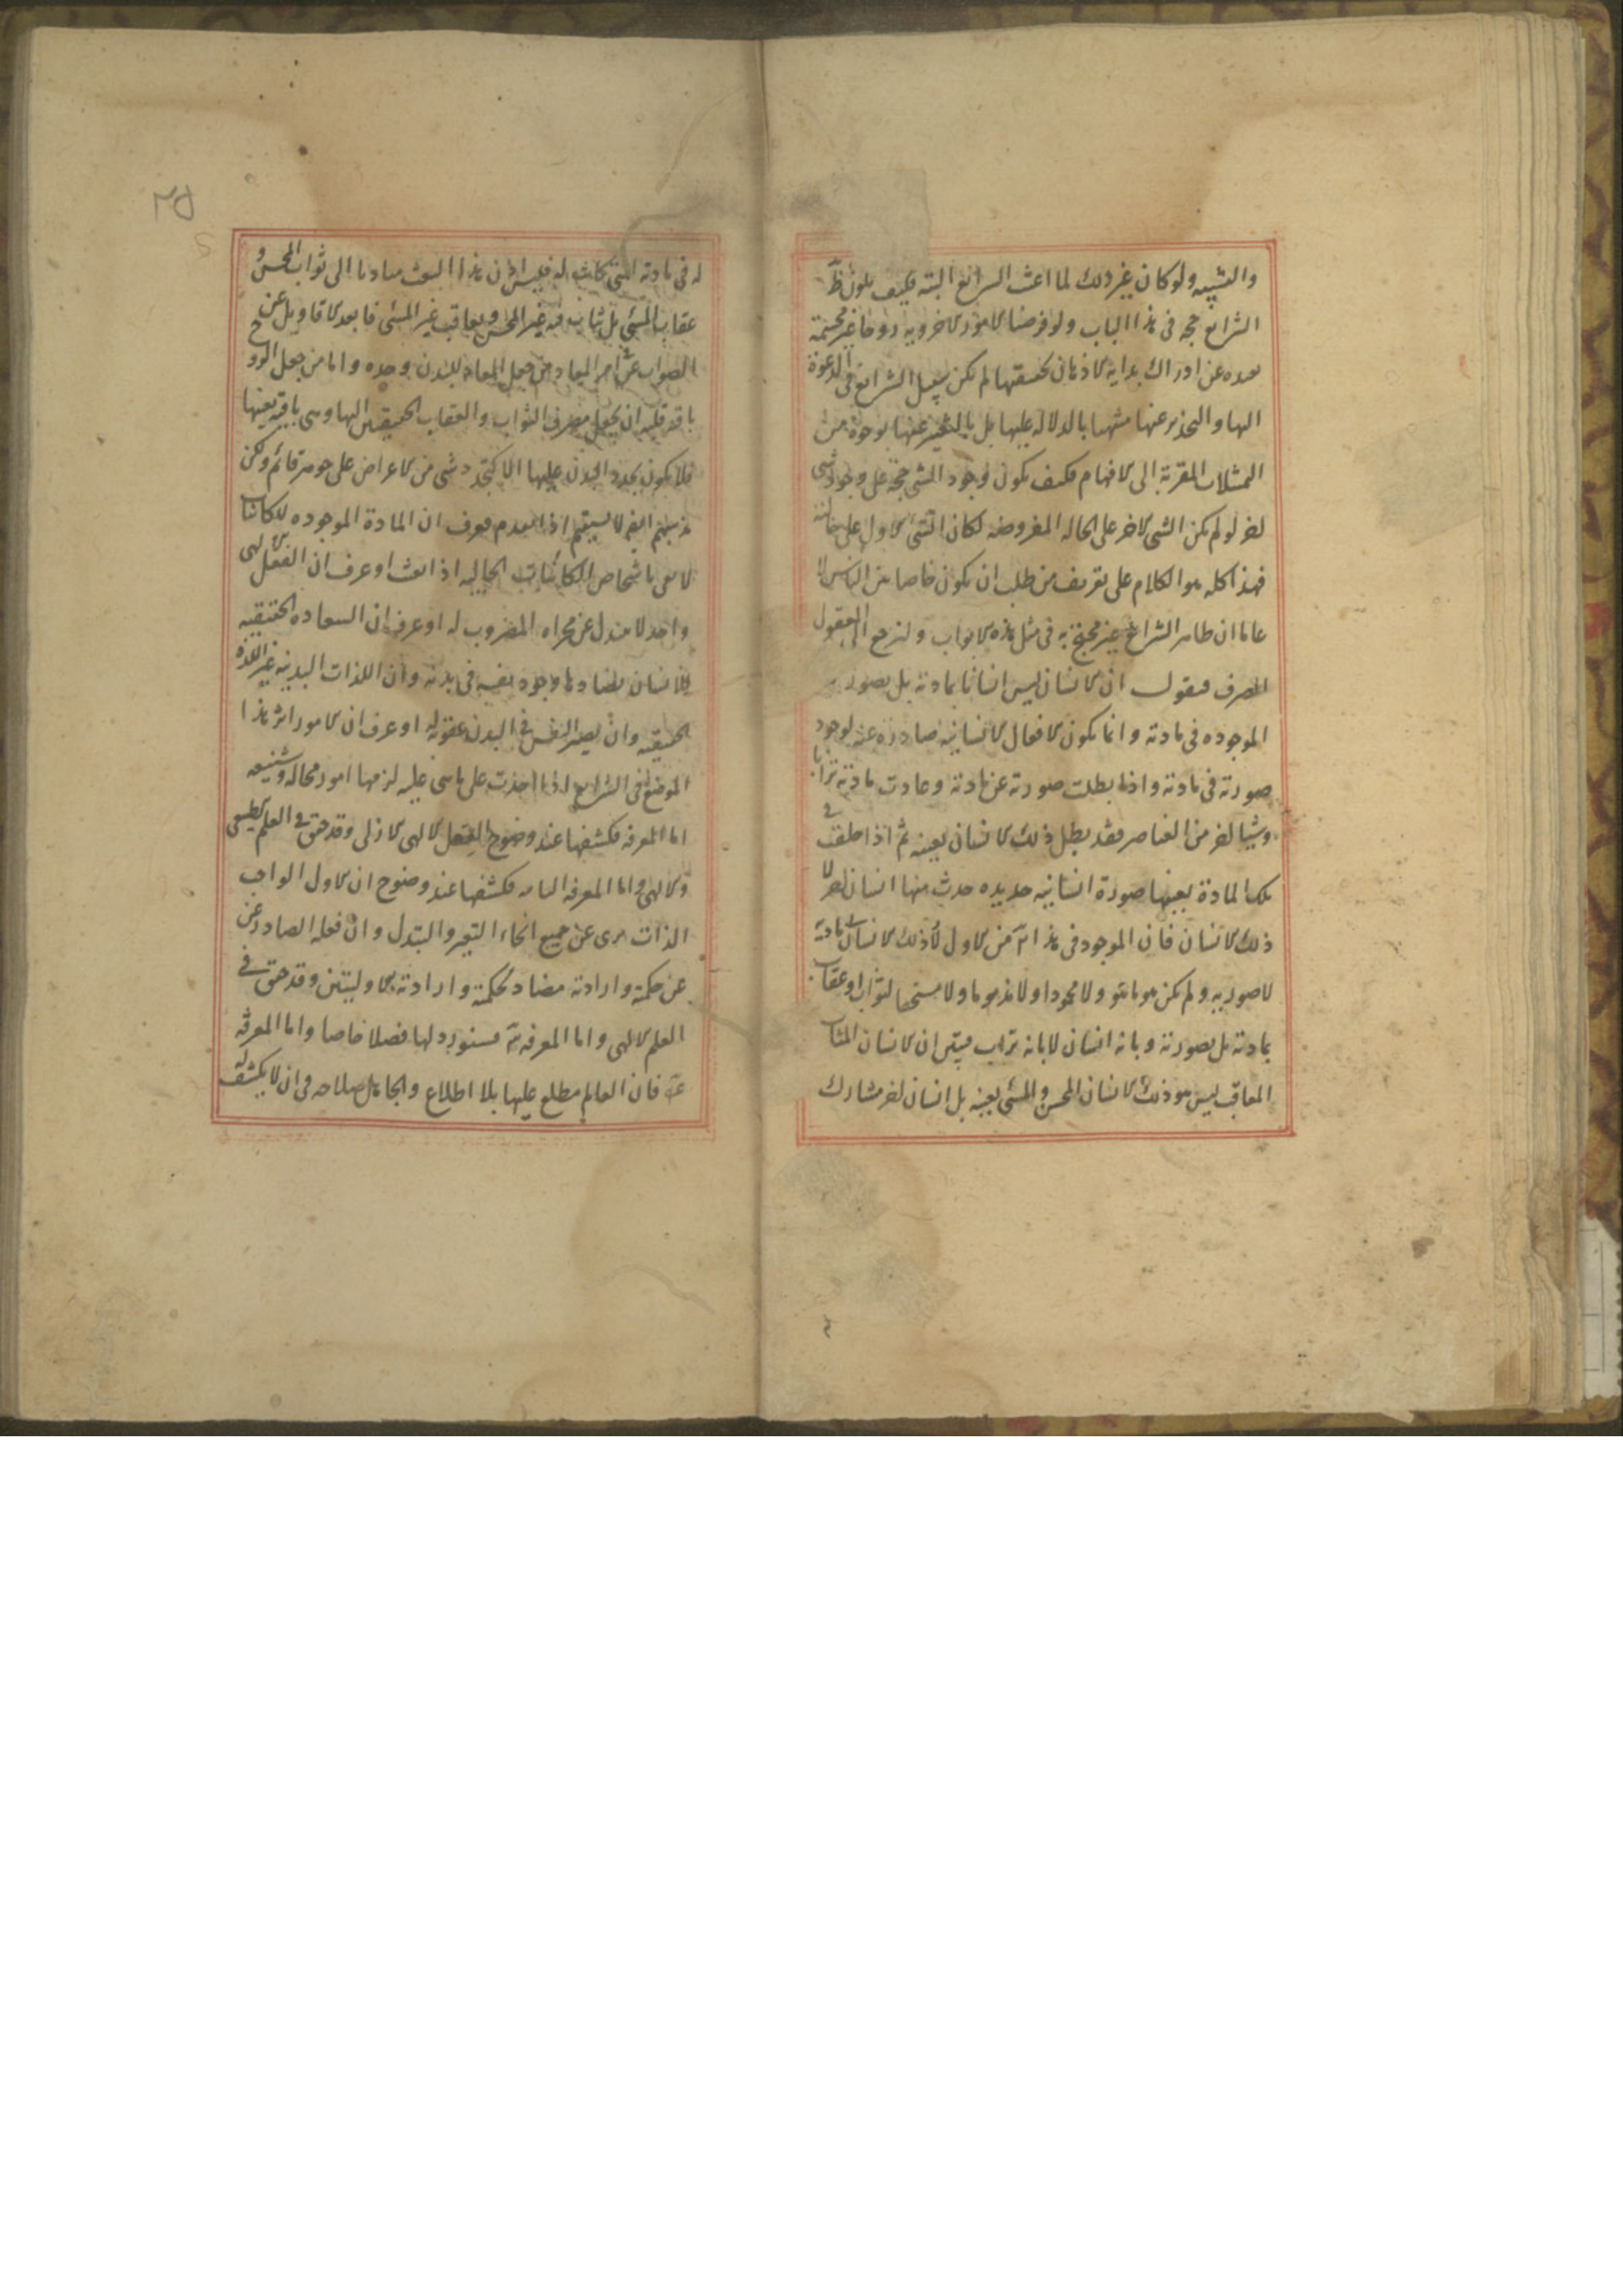 والتشبيه ولو كان غير ذلك لما اغنت الشرائع البتة فكيف يكون ظ
الشرائع حجة في هذا الباب ولو فرضنا الامور الاخروية روحانية غير مجسمة
بعيدة عن ادراك بداية الاذهان تحقيقها لم يكن سبيل الشرائع في الدعوة
اليها والتحذير عنها منبها بالدلالة عليها بل بالتعبير عنها بوجوه من
التمثيلات المقربة الى الافهام فكيف يكون وجود الشي حجة على وجود شي
اخر لو لم يكن الشي الاخر على الحالة المفروضة لكان الشي الاول على حالته
فهذا كله هو الكلام على تعريف من طلب ان يكون خاصا من الناس لا
عاما ان ظاهر الشرائع غير محتج به في مثل هذه الابواب ولنرجع الى المعقول
الصرف فنقول ان الانسان ليس انسانا بمادته بل بصورته
الموجودة في مادته وانما يكون الافعال الانسانية صادرة عنه لوجود
صورته في مادته واذا بطلت صورته عن مادته وعادت مادته ترابا
وشيا اخر من العناصر فقد بطل ذلك الانسان بعينه ثم اذا خلقت في
تلك المادة بعينها صورة انسانية جديدة حدث منها انسان اخر لا
ذلك الانسان فان الموجود في هذا الثاني من الاول لذلك الانسان مادته
لا صورته ولم يكن هو ما هو ولا محمودا ولا مذموما ولا مستحقا لثواب او عقاب
بمادته بل بصورته وبانه انسان لا بانه تراب فتبين ان الانسان المثاب
المعاقب ليس هو ذلك الانسان المحسن والمسئ بعينه بل انسان اخر مشارك
له في مادته التي كانت له فليس اذن هذا البعث مساويا الى ثواب المحسن و
عقاب المسئ بل يثاب فيه غير المحسن ويعاقب غير المسئ فابعد الاقاويل عن
الصواب عن امر المعاد من جعل المعاد للبدن وحده واما من جعل الروح
باقية فله ان يجعل مصرف الثواب والعقاب الحقيقيين اليها وهي باقية بعينها
فلا يكون تجدد البدن عليها الا كتجدد شي من الاعراض على جوهر قائم ولكن
مذهبهم ايضا لا يستقيم اذا تقدم فعرف ان المادة الموجودة للكائنات
لا تفي باشخاص الكائنات الخالية اذا بعثت او عرف ان الفعل الالهي
واحد لا يتبدل عن مجراه المضروب له او عرف ان السعادة الحقيقية
للانسان يضادها وجود نفسه في بدنه وان اللذات البدنية غير اللذة
الحقيقية وان تصير النفس في البدن عقوبة له او عرف ان الامور اثر هذا
الموضع في الشرائع اذا اخذت على ما هي عليه لزمها امور محالة وشنيعة
اما المعرفة فكشفها عند وضوح الفعل الالهي الازلي وقد حقق في العلم الطبيعي
والالهي واما المعرفة الثانية فكشفها عند وضوح ان الاول الواجب
الذات برئ عن جميع انحاء التغير والتبدل وان فعله الصادر عن
عن حكمة وارادة مضاد لحكمة وارادة الاوليتين وقد حقق في
العلم الالهي واما المعرفة فسنورد لها فصلا خاصا واما المعرفة
فان العالم مطلع عليها بلا اطلاع والجاهل صلاحه في ان لا يكشف له